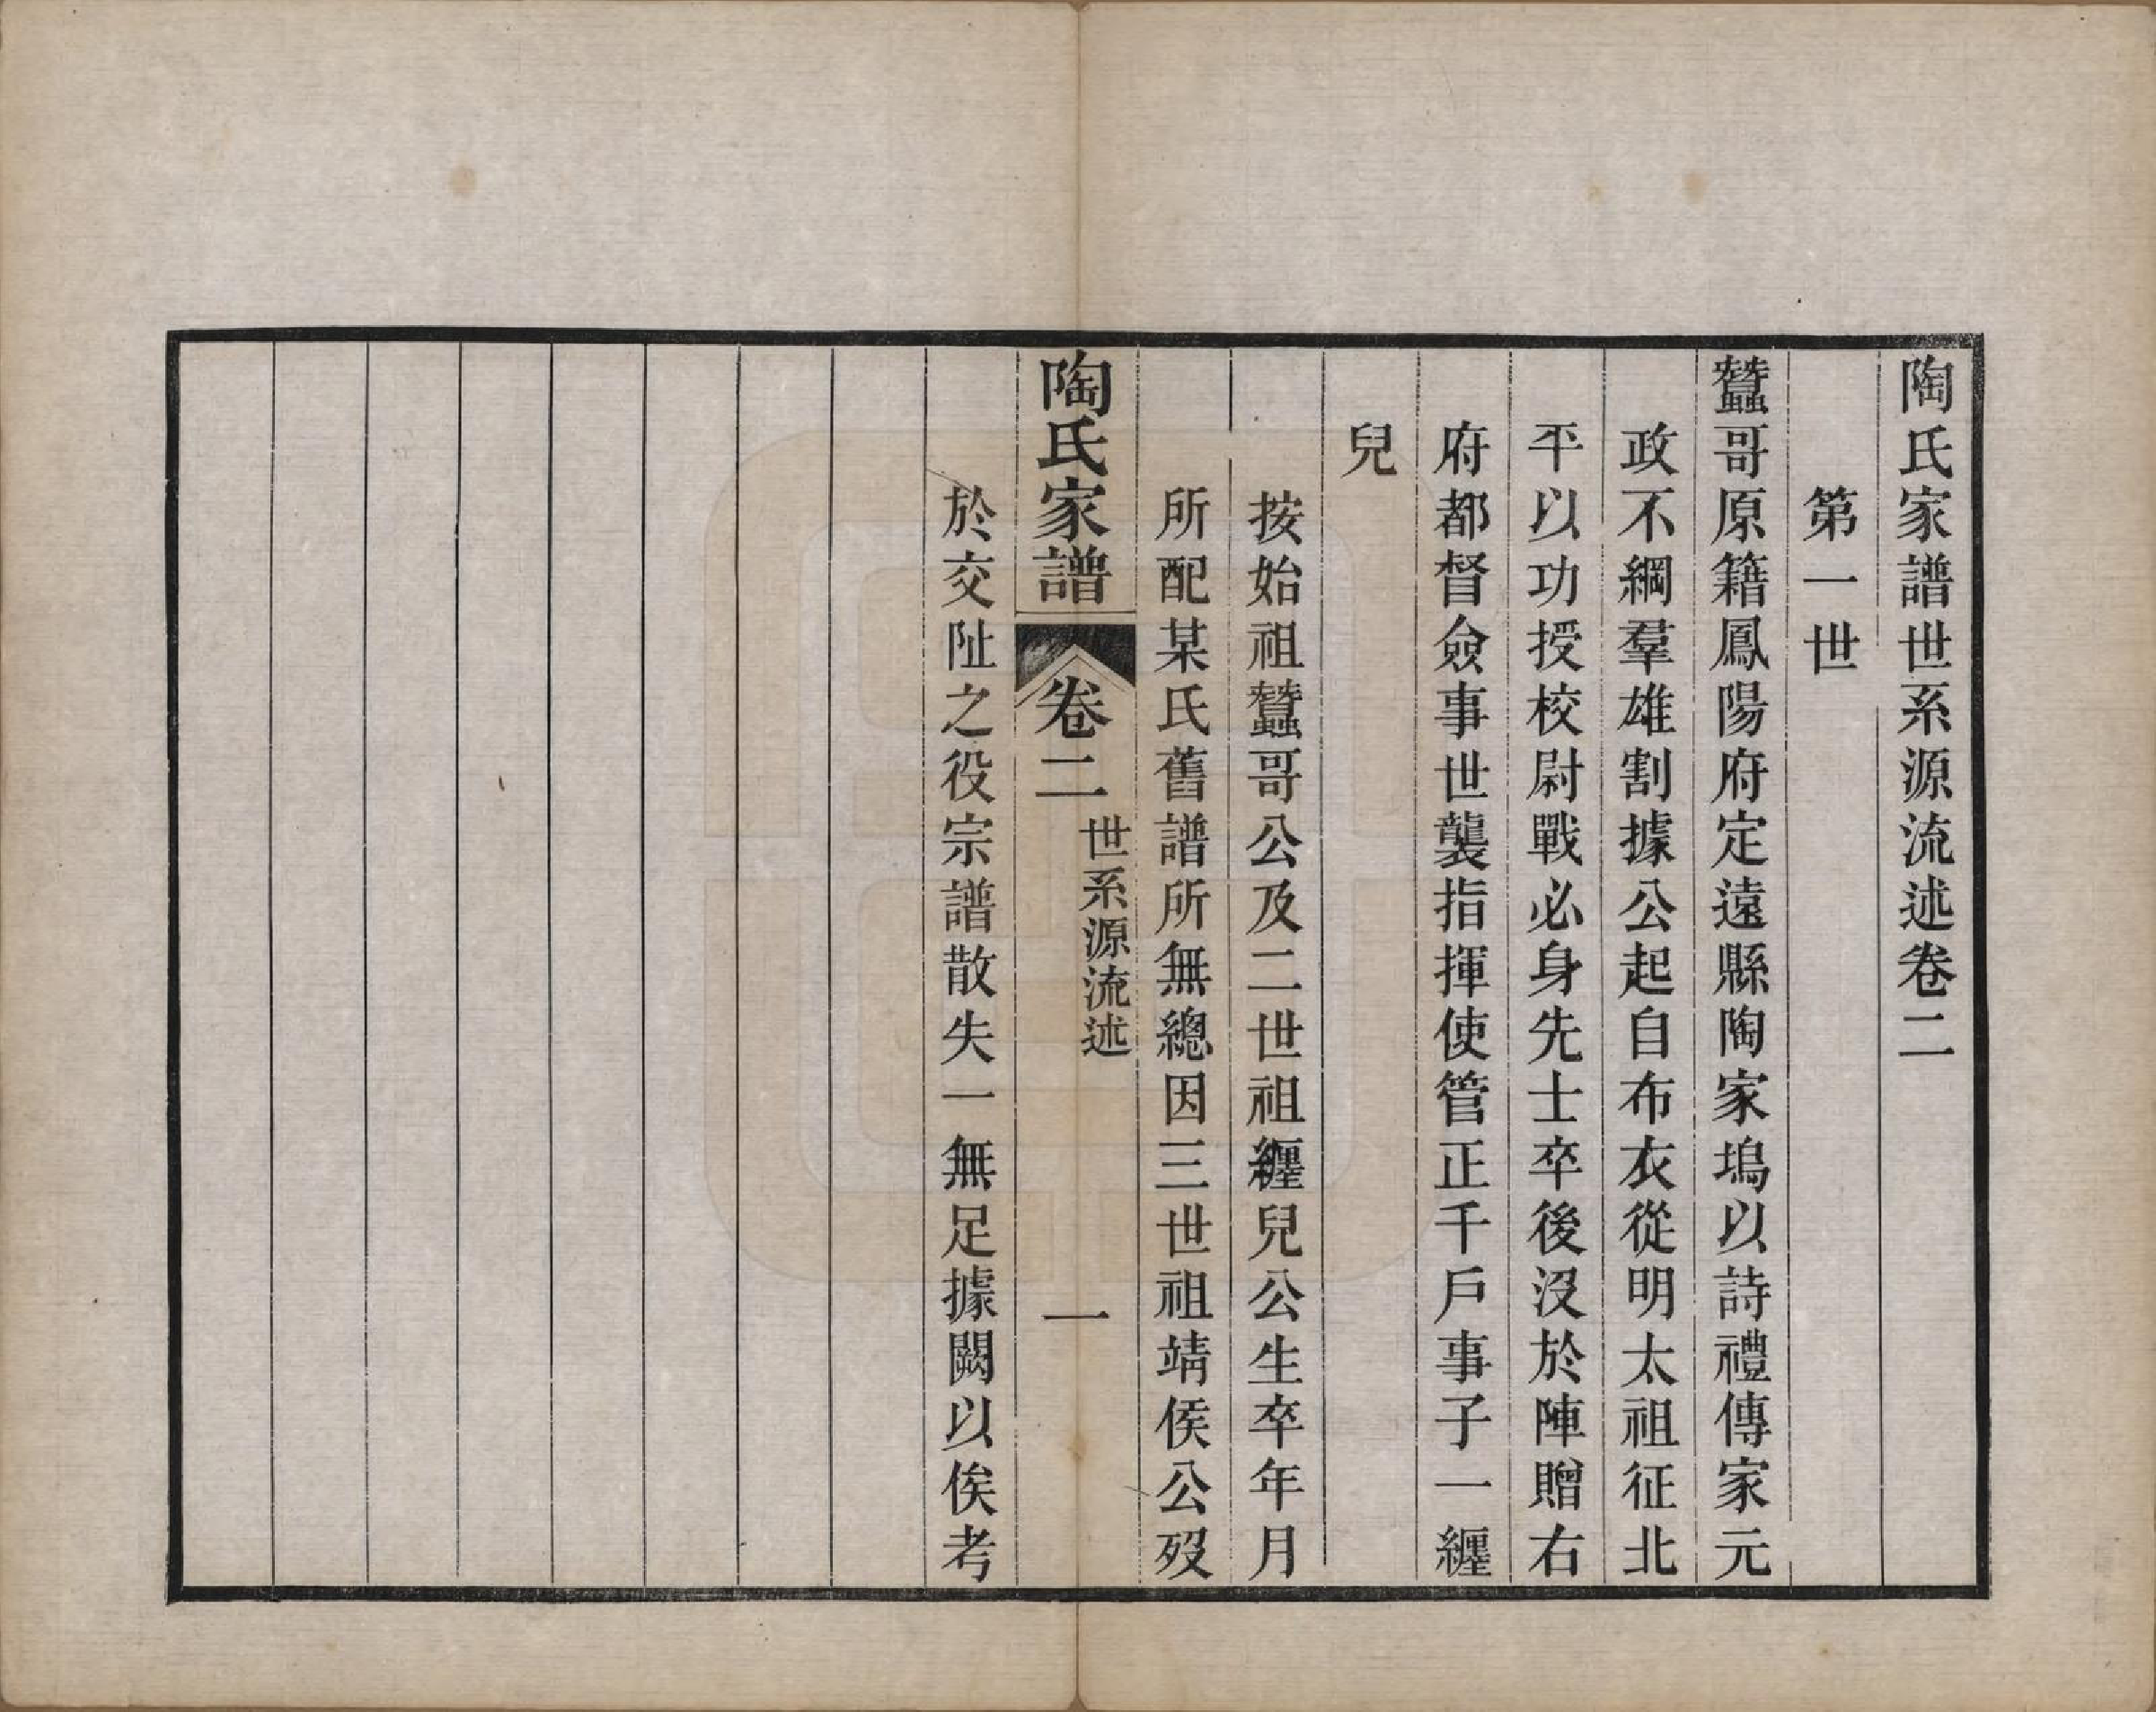 陶氏家譜世系源流述卷二
第一世
蠶哥原籍鳳陽府定遠縣陶家塢以詩禮傳家元
政不綱羣雄割據公起自布衣從明太祖征北
平以功授校尉戰必身先士卒後沒於陣贈右
府都督僉事世襲指揮使管正千戶事子一纏
兒
按始祖蠶哥公及二世祖纏兒公生卒年月
所配某氏舊譜所無總因三世祖靖侯公歿
陶氏家譜 卷二 世系源流述 一
於交阯之役宗譜散失一無足據闕以俟考